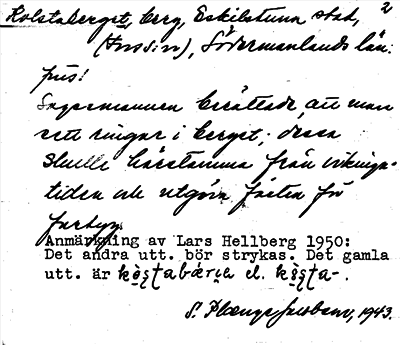 2
Kolstaberget, berg, Eskilstuna stad,
Södermanlands län:
Sagesmannen berättade, att man
sett ringar i berget; dessa
skulle härstamma från vikinga-
tiden och utgöra fästen för
fartyg.
Anmärkning av Lars Hellberg 1950:
Det andra utt. bör strykas. Det gamla
utt. är el.
S. 1943.